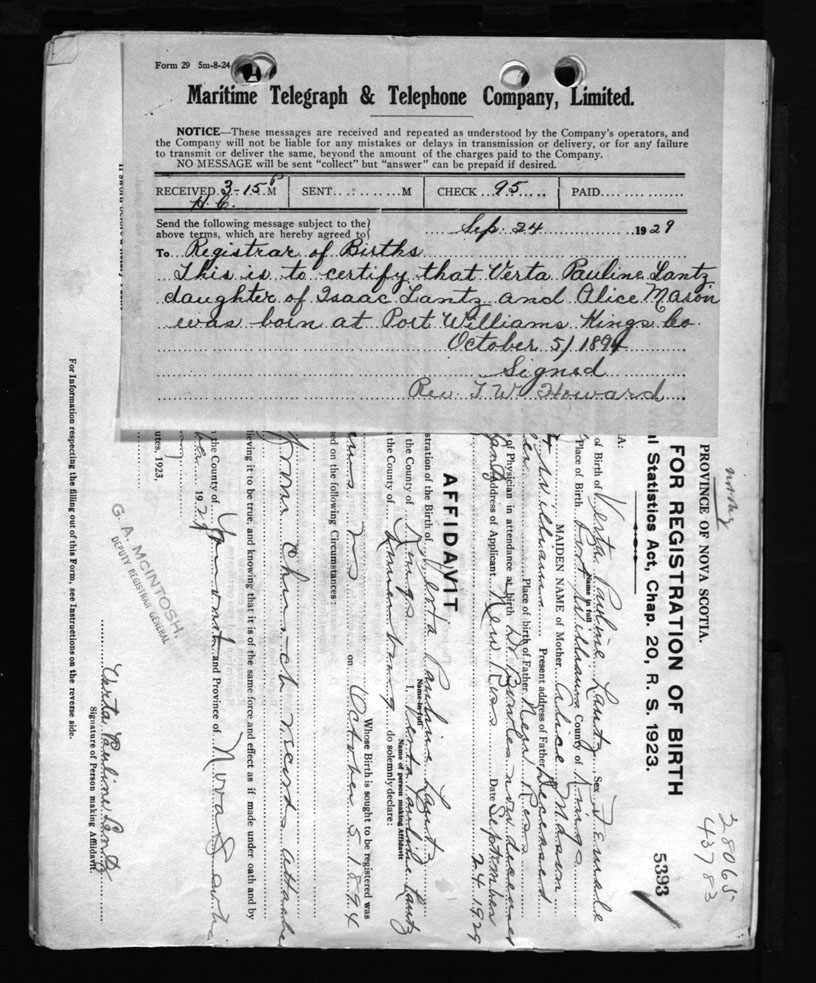 Form 29 5m-8-24
Maritime Telegraph & Telephone Company, Limited.
NOTICE—These messages are received and repeated as understood by the Company's operators, and
the Company will not be liable for any mistakes or delays in transmission or delivery, or for any failure
to transmit or deliver the same, beyond the amount of the charges paid to the Company.
NO MESSAGE will be sent "collect" but "answer" can be prepaid if desired.
RECEIVED 3-15 P M SENT M CHECK 95 PAID
H.C.
Send the following message subject to the
above terms, which are hereby agreed to
Sep. 24 1929
To Registrar of Births
This is to certify that Verta Pauline Lantz
daughter of Isaac Lantz and Alice Mason
was born at Port Williams Kings Co.
October 5/1894
Signed
Rev. T W Howard
28065
43783
PROVINCE OF NOVA SCOTIA.
FOR REGISTRATION OF BIRTH
5393
l Statistics Act, Chap. 20, R. S. 1923.
A:
of Birth of Verta Pauline Lantz Sex Female
Name in full
Place of Birth Port Williams County of Kings
MAIDEN NAME of Mother Alice Mason
Williams Present address of Father Deceased
Place of birth of Father New Ross
of Physician in attendance at birth Dr Bowles now deceased
Address of Applicant New Ross Date September
24 1929
AFFIDAVIT
stration of the Birth of Verta Pauline Lantz
Name in full
the County of Kings I, Verta Pauline Lantz
Name of person making Affidavit
the County of do solemnly declare:
Whose Birth is sought to be registered was
on October 5 1894
sed on the following Circumstances:
from Church records attache
lieving it to be true, and knowing that it is of the same force and effect as if made under oath and by
n the County of and Province of Nova Scotia
ber 1929
tutes, 1923.
G. A. McINTOSH,
DEPUTY REGISTRAR GENERAL
Verta Pauline Lantz
Signature of Person making Affidavit.
For Information respecting the filling out of this Form, see Instructions on the reverse side.